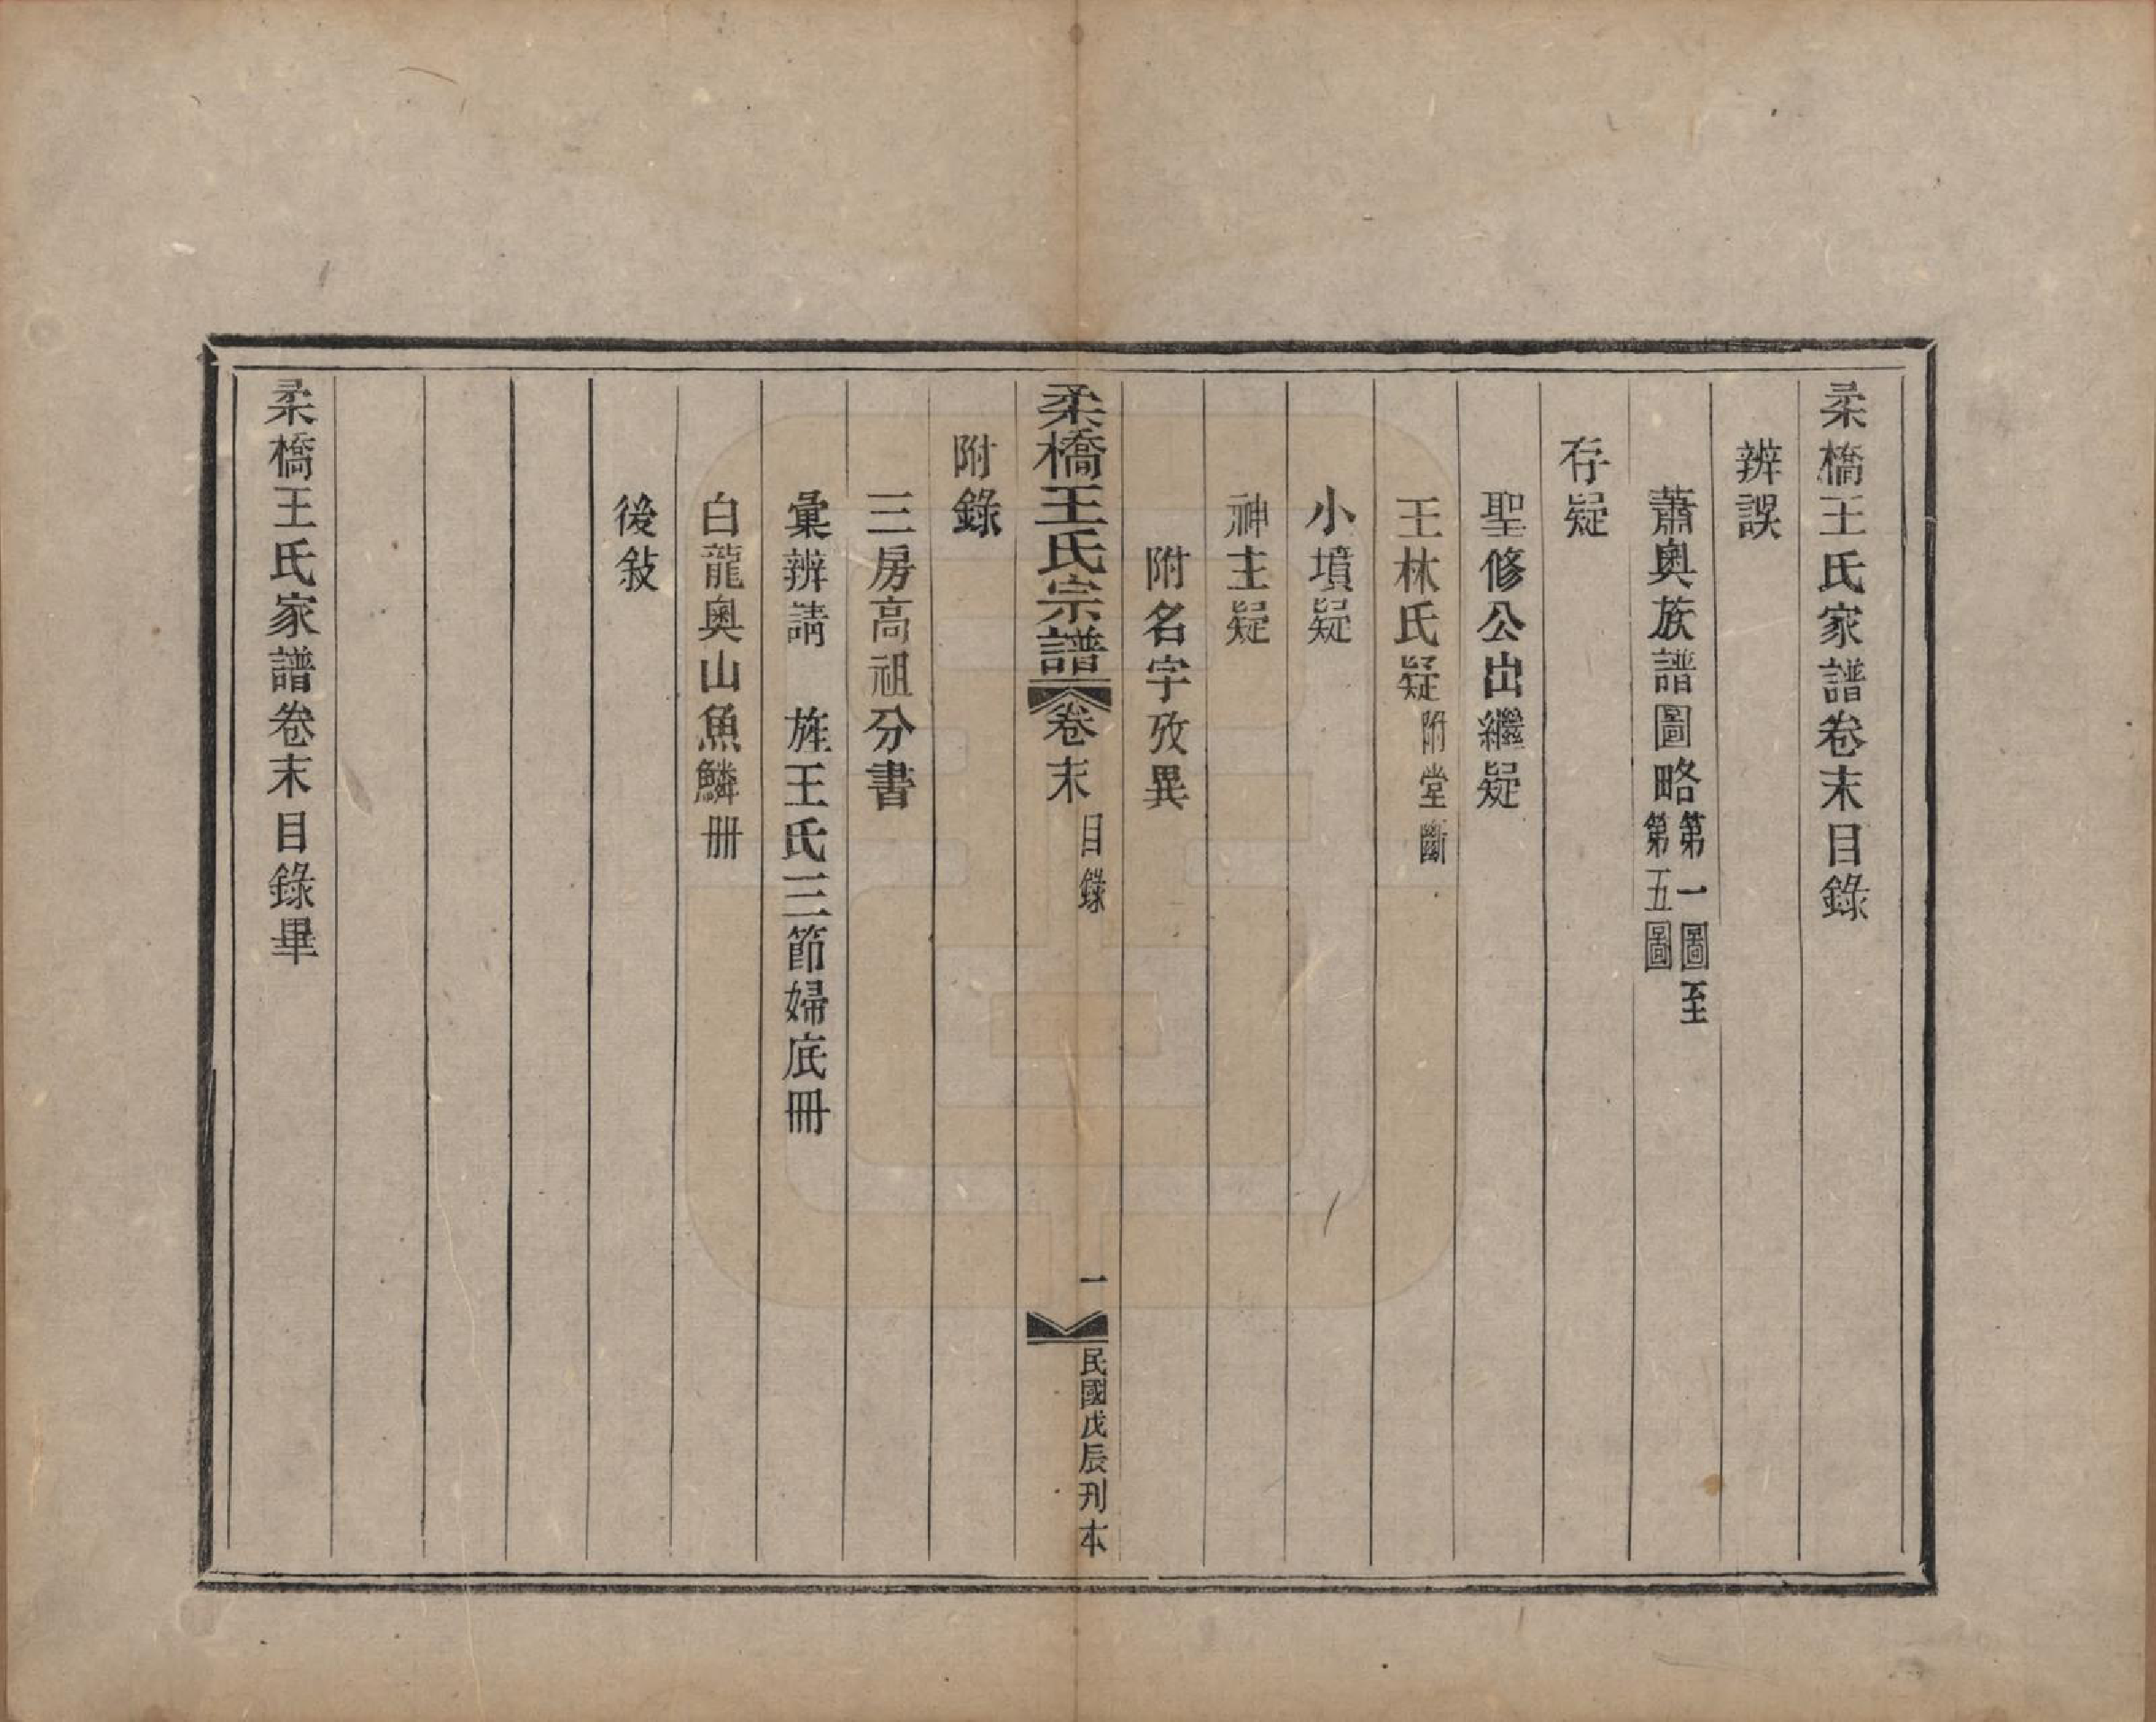 柔橋王氏家譜卷末目錄
辨誤
蕭奧族譜圖略第一圖至第五圖
存疑
聖修公出繼疑
王林氏疑附堂斷
小墳疑
神主疑
附名字攷異
柔橋王氏宗譜 卷末 目錄 一 民國戊辰刊本
附錄
三房高祖分書
彙辨請 旌王氏三節婦底冊
白龍奧山魚鱗冊
後敍
柔橋王氏家譜卷末目錄畢